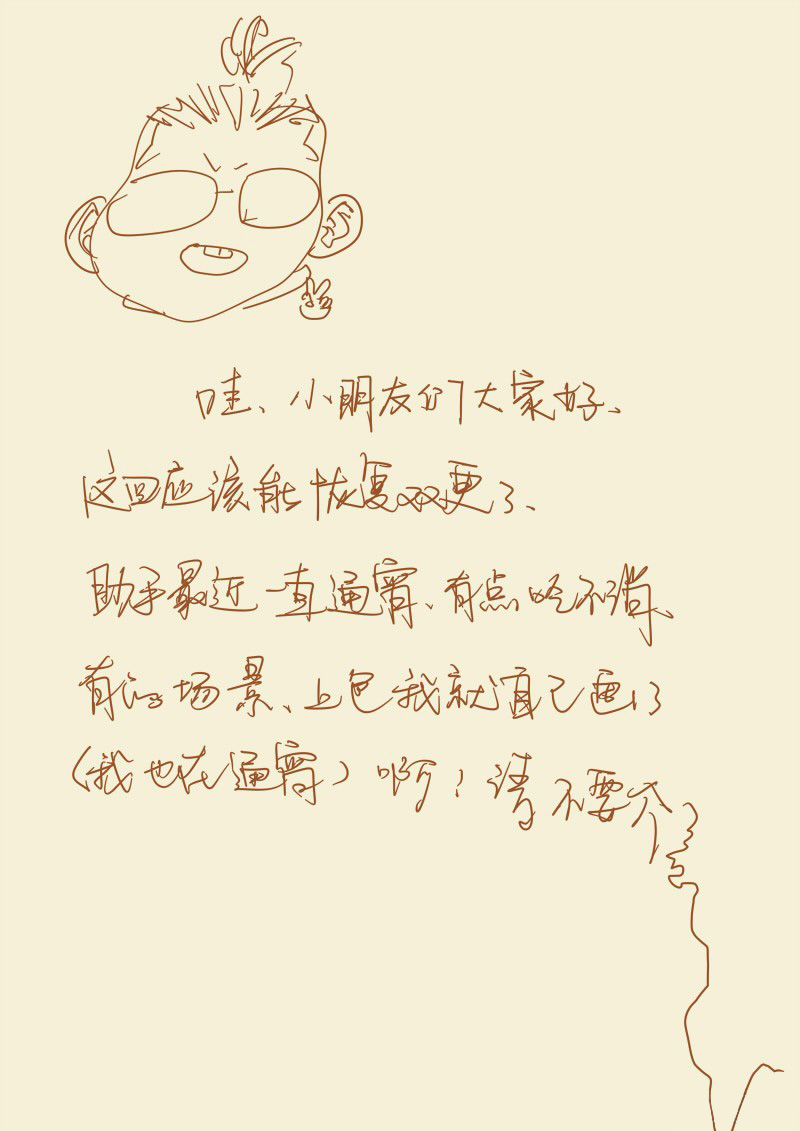 哇、小朋友们大家好、
这回应该能恢复双更了、
助手最近一直通宵、有点吃不消、
有的场景、上色我就自己画了
(我也在通宵)啊！请不要介